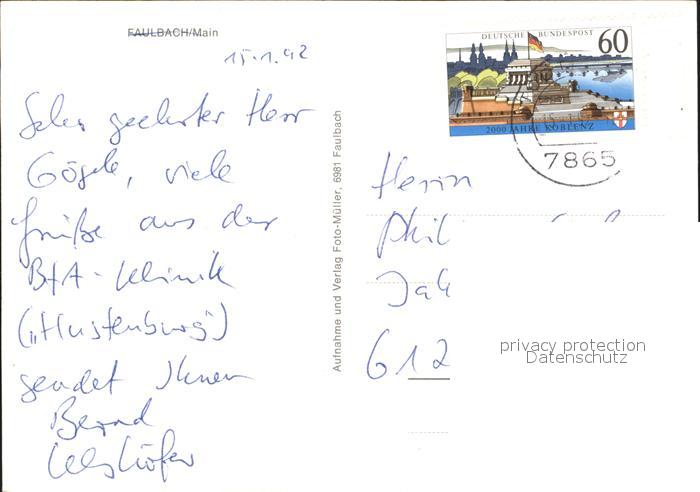 FAULBACH/Main
15.1.92
Sehr geehrter Herr
Gögele, viele
Grüße aus der
BfA-Klinik
("Hustenburg")
sendet Ihnen
Bernd
Aufnahme und Verlag Foto-Müller, 6981 Faulbach
DEUTSCHE BUNDESPOST 60
2000 JAHRE KOBLENZ
7865
Herrn
Phil
Jak
612
privacy protection
Datenschutz